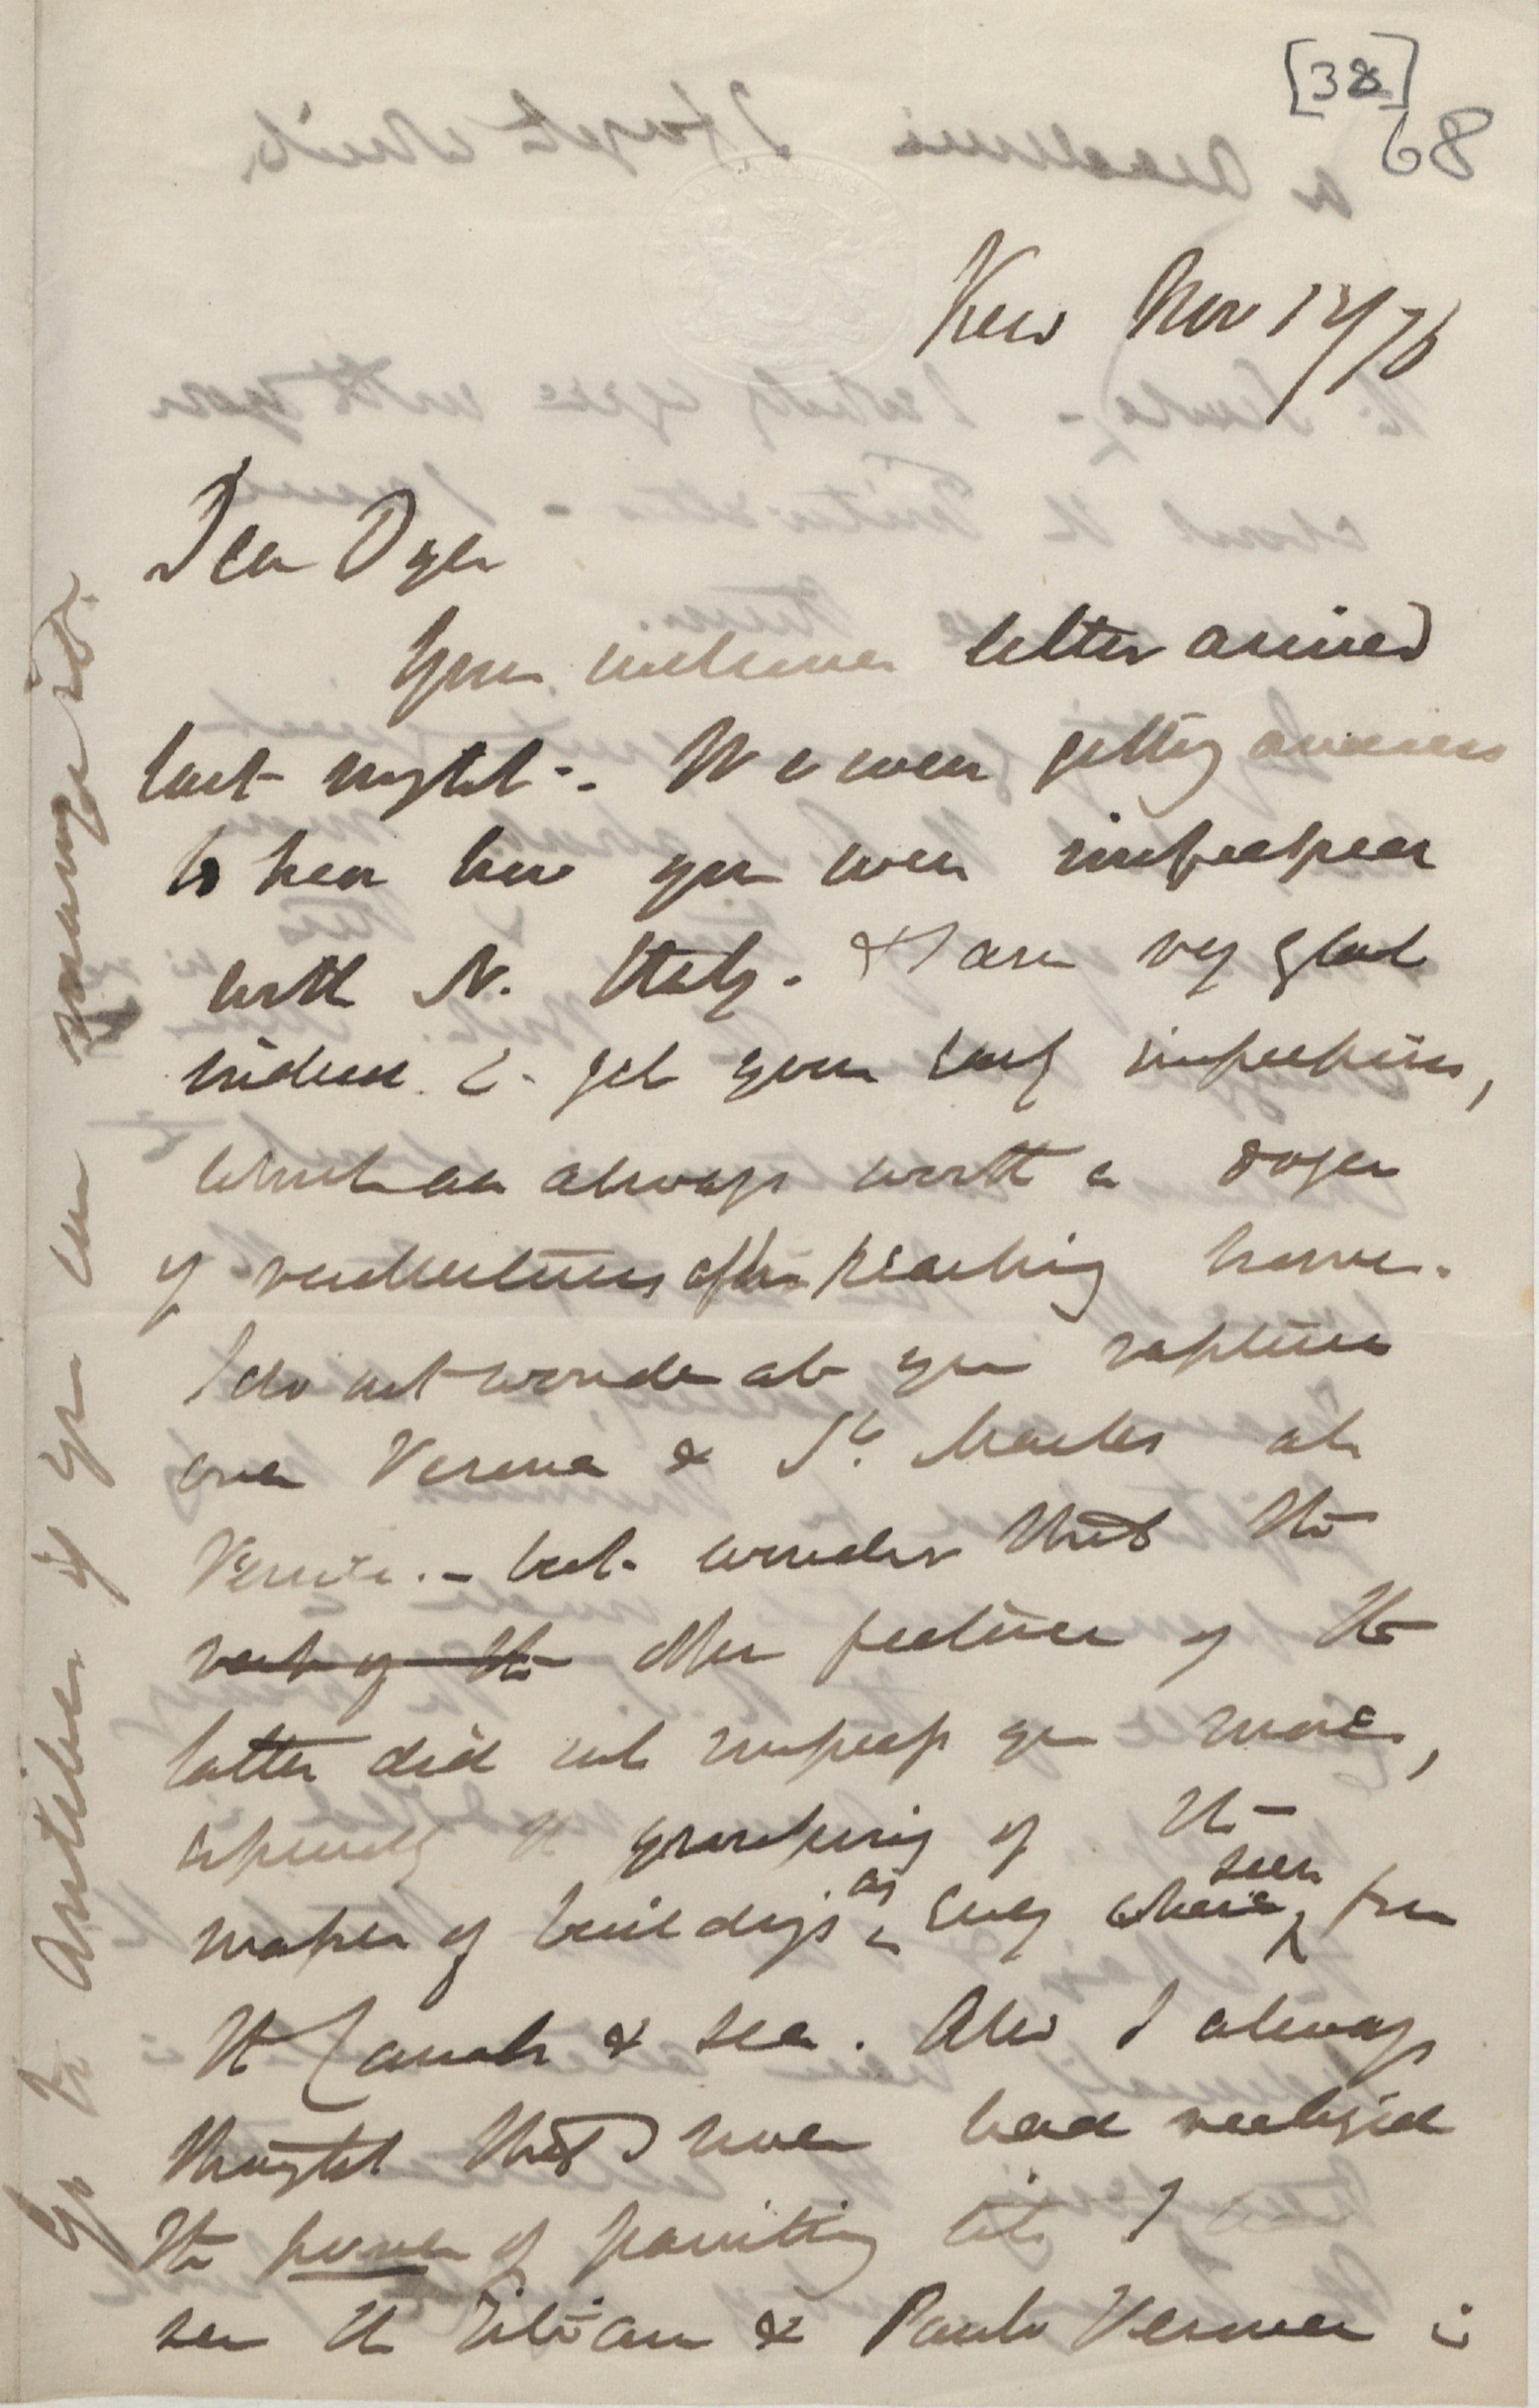 [38]
68
Kew Nov 12/76
Dear Dyer
Your welcome letter arrived
last night -. We were getting anxious
to hear how you were impressed
with N. Italy. & I am very glad
indeed to get your early impressions,
which are always worth a dozen
of recollections after reaching home.
I do not wonder at your raptures
over Verona & St. Marks at
Venice. - but wonder that the
rest of the other features of the
latter did not impress you more,
especially the grouping of the
masses of buildings as they where seen from
the Canals & sea. Also I always
thought that I never had realized
the power of painting till I
saw the Titian & Paulo Verones in
Go to Antibes if you can manage it.